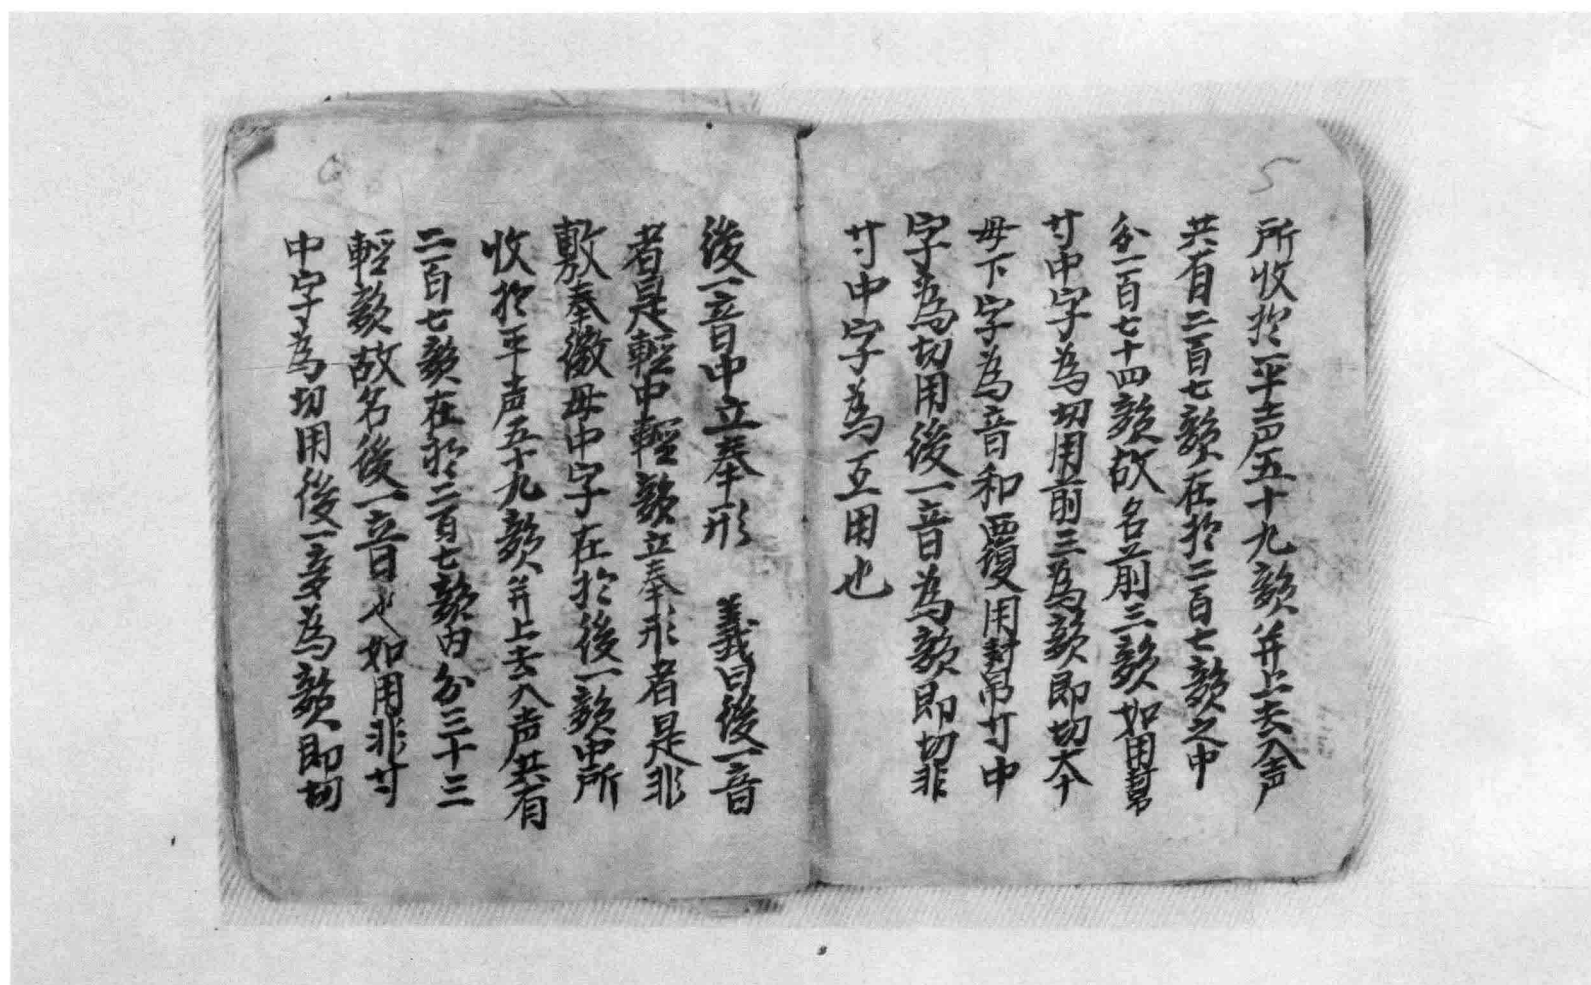 5
所收於平声五十九韻并上去入声
共有二百七韻在於二百七韻之中
分一百七十四韻故名前三韻如用幫
寸中字為切用前三為韻即切本
母下字為音和要用封帛寸中
字為切用後一音為韻即切非
寸中字為互用也
後一音中立奉形 義曰後一音
者是輕中輕韻立奉形者是非
敷奉微母中字在於後一韻中所
收於平声五十九韻并上去入声共有
二百七韻在於二百七韻內分三十三
輕韻故名後一音也如用非寸
中字為切用後一音為韻即切